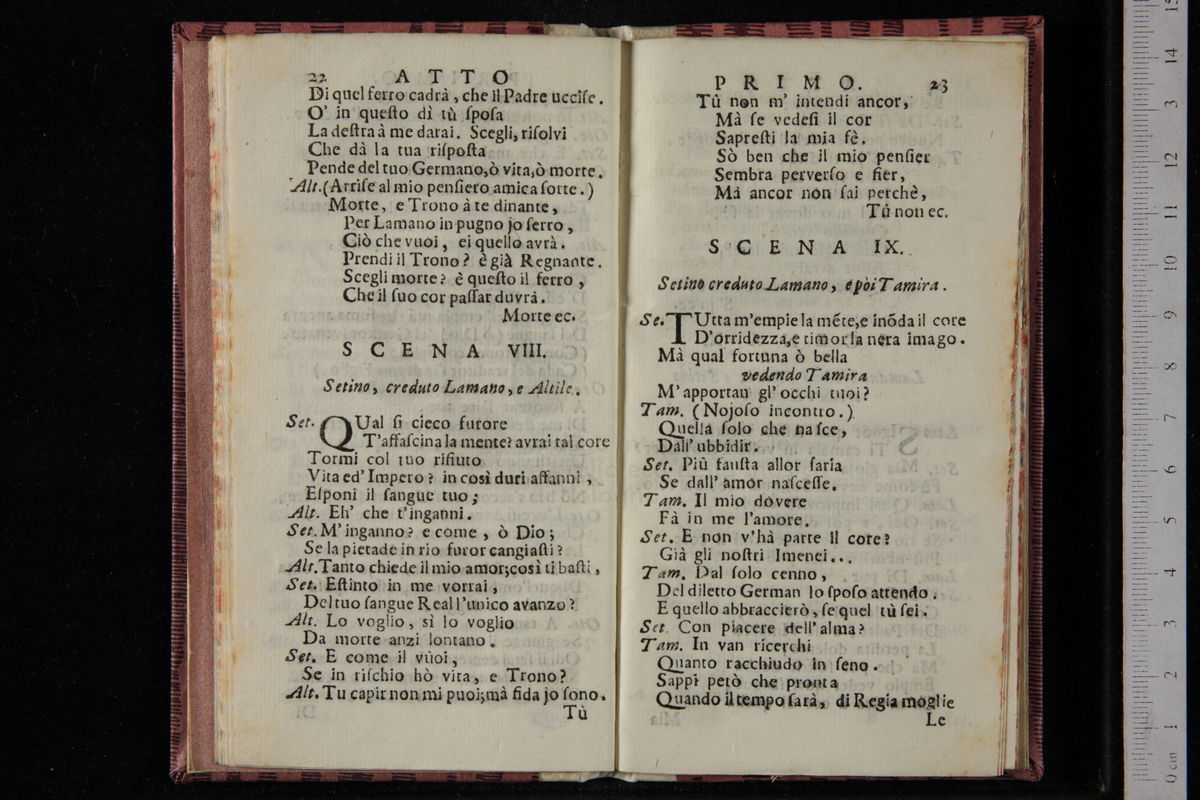 22 ATTO
Di quel ferro cadrà, che il Padre ucciſe.
O' in queſto dì tù ſpoſa
La deſtra à me darai. Scegli, riſolvi
Che dà la tua riſpoſta
Pende del tuo Germano, ò vita, ò morte.
Alt. (Arriſe al mio penſiero amica ſorte.)
Morte, e Trono à te dinante,
Per Lamano in pugno jo ſerro,
Ciò che vuoi, ei quello avrà.
Prendi il Trono? è già Regnante.
Scegli morte? è queſto il ferro,
Che il ſuo cor paſſar duvrà.
Morte ec.
SCENA VIII.
Setino, creduto Lamano, e Altile.
Set. QUal ſi cieco furore
T'affaſcina la mente? avrai tal core
Tormi col tuo rifiuto
Vita ed' Impero? in così duri affanni,
Eſponi il ſangue tuo;
Alt. Eh' che t'inganni.
Set. M'inganno? e come, ò Dio;
Se la pietade in rio furor cangiaſti?
Alt. Tanto chiede il mio amor; così ti baſti,
Set. Eſtinto in me vorrai,
Del tuo ſangue Real l'unico avanzo?
Alt. Lo voglio, sì lo voglio
Da morte anzi lontano.
Set. E come il vùoi,
Se in riſchio hò vita, e Trono?
Alt. Tu capir non mi puoi; mà fida jo ſono.
Tù
PRIMO. 23
Tù non m' intendi ancor,
Mà ſe vedeſi il cor
Sapreſti la mia fè.
Sò ben che il mio penſier
Sembra perverſo e fier,
Mà ancor non ſai perchè,
Tù non ec.
SCENA IX.
Setino creduto Lamano, e pòi Tamira.
Se. TUtta m'empie la méte, e inōda il core
D'orridezza, e timor la nera imago.
Mà qual fortuna ò bella
vedendo Tamira
M' apportan gl' occhi tuoi?
Tam. (Nojoſo incontro.)
Quella ſolo che naſce,
Dall' ubbidir.
Set. Più fauſta allor ſaria
Se dall' amor naſceſſe.
Tam. Il mio dovere
Fà in me l'amore.
Set. E non v'hà parte il core?
Già gli noſtri Imenei...
Tam. Dal ſolo cenno,
Del diletto German lo ſpoſo attendo.
E quello abbraccierò, ſe quel tù ſei.
Set. Con piacere dell' alma?
Tam. In van ricerchi
Quanto racchiudo in ſeno.
Sappi però che pronta
Quando il tempo ſarà, di Regia moglie
Le